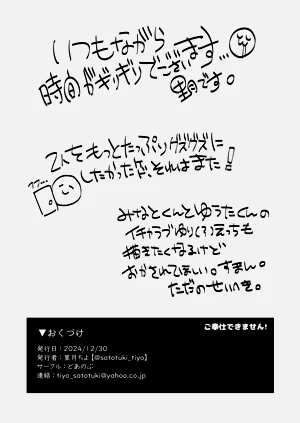 いつもながら
時間がギリギリでございます…
里月です。
2人をもっとたっぷりグズグズに
したかったが、それはまた!
みなとくんとゆうたくんの
イチャラブゆり(?)えっちも
描きたくなるけど
おかされてほしい。すまん。
ただのせいへき。
ご奉仕できません!
▼おくづけ
発行日：2024/12/30
発行者：里月ちよ【@satotuki_tiyo】
サークル：どあのぶ
連絡：tiyo_satotuki@yahoo.co.jp